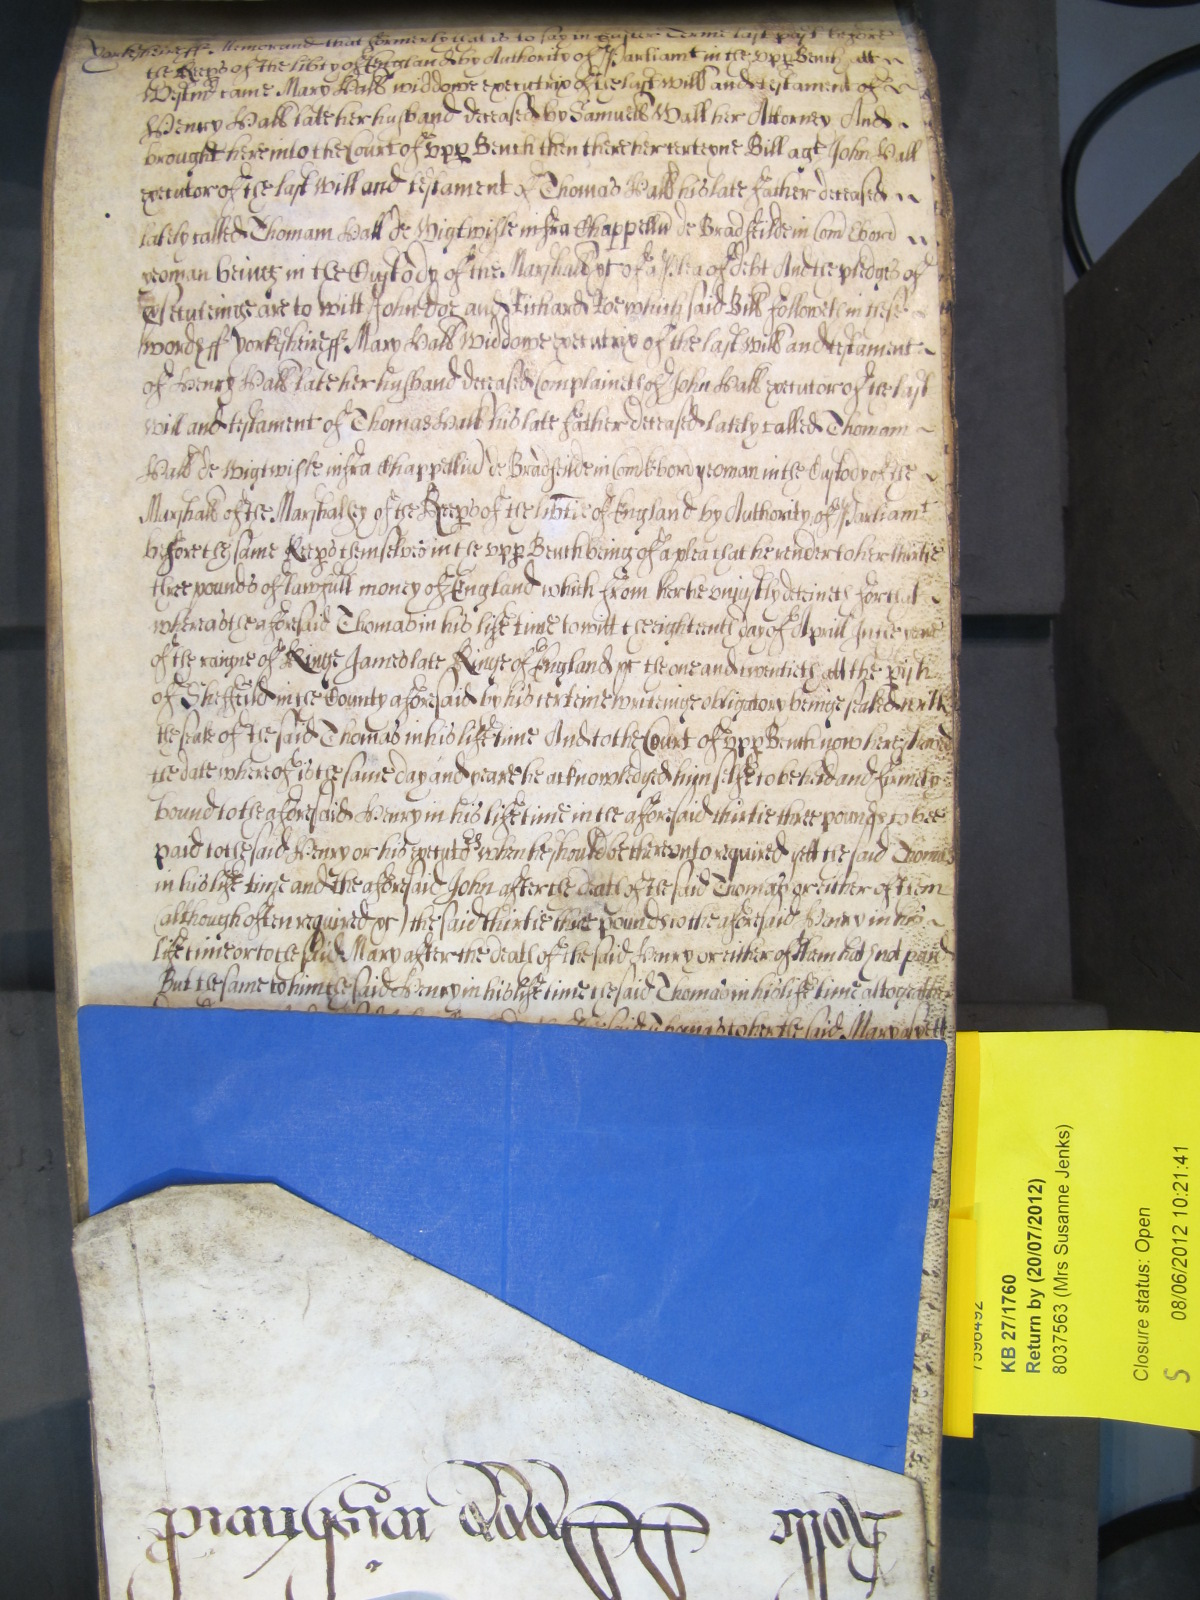 Yorkesheire ss Memorand that formerly that is to say in Easter Terme last past before
the Keeps of the libty of England by Authority of Parliamt in the upp Bench att
Westmr came Mary Hall widdowe executrix of the last will and testament of
Henry Hall late her husband deceased by Samuell Wall her Attorney And
brought here into the Court of upp Bench then there her certeyne Bill agt John Hall
executor of the last will and testament of Thomas Hall his late father deceased
lately called Thomam Hall de Wigtwisle infra Chappelliū de Bradfeilde in Com Ebord
yeoman beinge in the Custody of the Marshall &c of a Plea of debt And the pledges of
Prosecuteinge are to witt John Doe and Richard Roe which said Bill followeth in these
words ss Yorkesheire ss Mary Hall Widdowe executrix of the last will and testament
of Henry Hall late her husband deceased Complaineth of John Hall executor of the last
will and testament of Thomas Hall his late father deceased lately called Thomam
Hall de Wigtwisle infra Chappelliū de Bradfeilde in Com Ebor yeoman in the Custody of the
Marshall of the Marshalsey of the Keeps of the libtie of England by Authority of Parliamt
before the same Keeps themselves in the upp Bench being of a plea that he render to her thirtie
three pounds of lawfull money of England which from her he unjustly deteineth for that
whereas the aforesaid Thomas in his life time to witt the eighteenth day of Aprill In the yeare
of the raigne of Kinge James late Kinge of England &c the one and twentieth att the pish
of Sheffeild in the County aforesaid by his certeine writeinge obligatory beinge sealed with
the seale of the said Thomas in his life time And to the Court of upp Bench now here shewed
the date whereof is the same day and yeare he acknowledged himselfe to be held and firmely
bound to the aforesaid Henry in his life time in the aforesaid thirtie three pounds to bee
paid to the said Henry or his executors when he should be thereunto required yett the said Thomas
in his life time and the aforesaid John after the death of the said Thomas or either of them
(although often required &c) the said thirtie three pounds to the aforesaid Henry in his
life time or to the said Mary after the death of the said Henry or either of them hath not paid
But the same to him the said Henry in his life time the said Thomas in his life time altogether
said Thomas to her the said Mary
KB 27/1760
Return by (20/07/2012)
8037563 (Mrs Susanne Jenks)
Closure status: Open
08/06/2012 10:21:41
S
Rolle